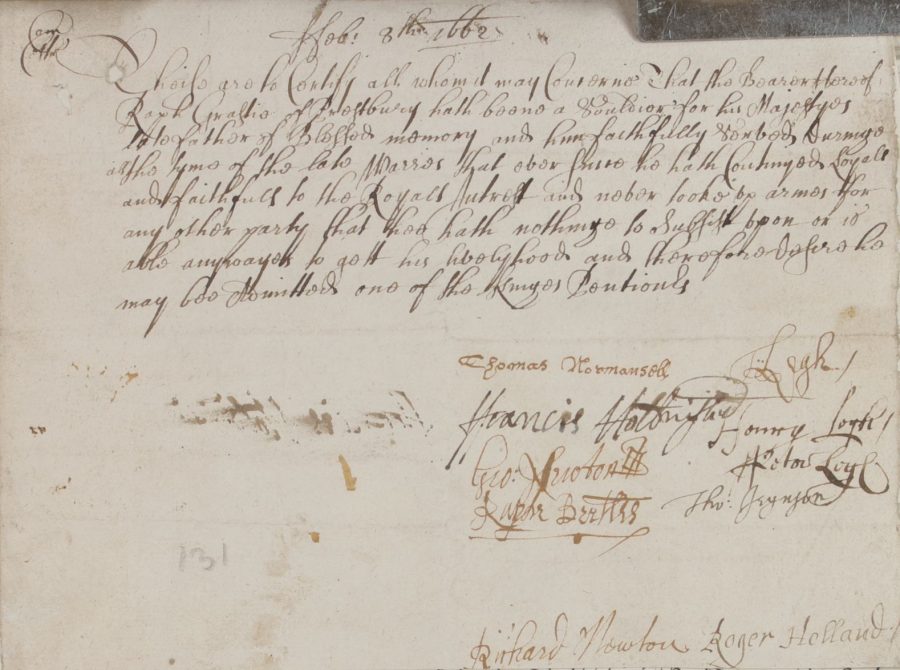 Com
Cestr
ffeb: 8th 1662
Theise are to Certify all whom it may Concerne That the Bearer Hereof
Raph of Prestbury hath beene a Souldior for his Majestyes
late father of Blessed memory and him faithfully Served Duringe
all the tyme of the late Warres That ever since he hath Continyed Loyall
and faithfull to the Royall Intrest and never tooke up armes for
any other party that hee hath nothinge to Subsist upon or is
able anywayes to gett his livelyhood and therefore desire he
may bee Admitted one of the Kinges Pentionrs
Thomas Normansell Legh
Francis Hollinshed Henry Legh
Geo: Newton Peter Legh
Raphe Thos:
Richard Newton Roger Holland
131